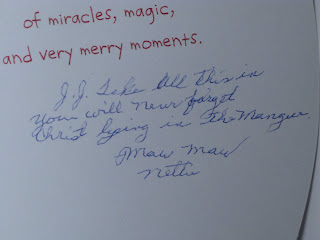 of miracles, magic,
and very merry moments.
J.J. Take all this in
your will never forget
Christ lying in the Manger.
Maw Maw
Nettie